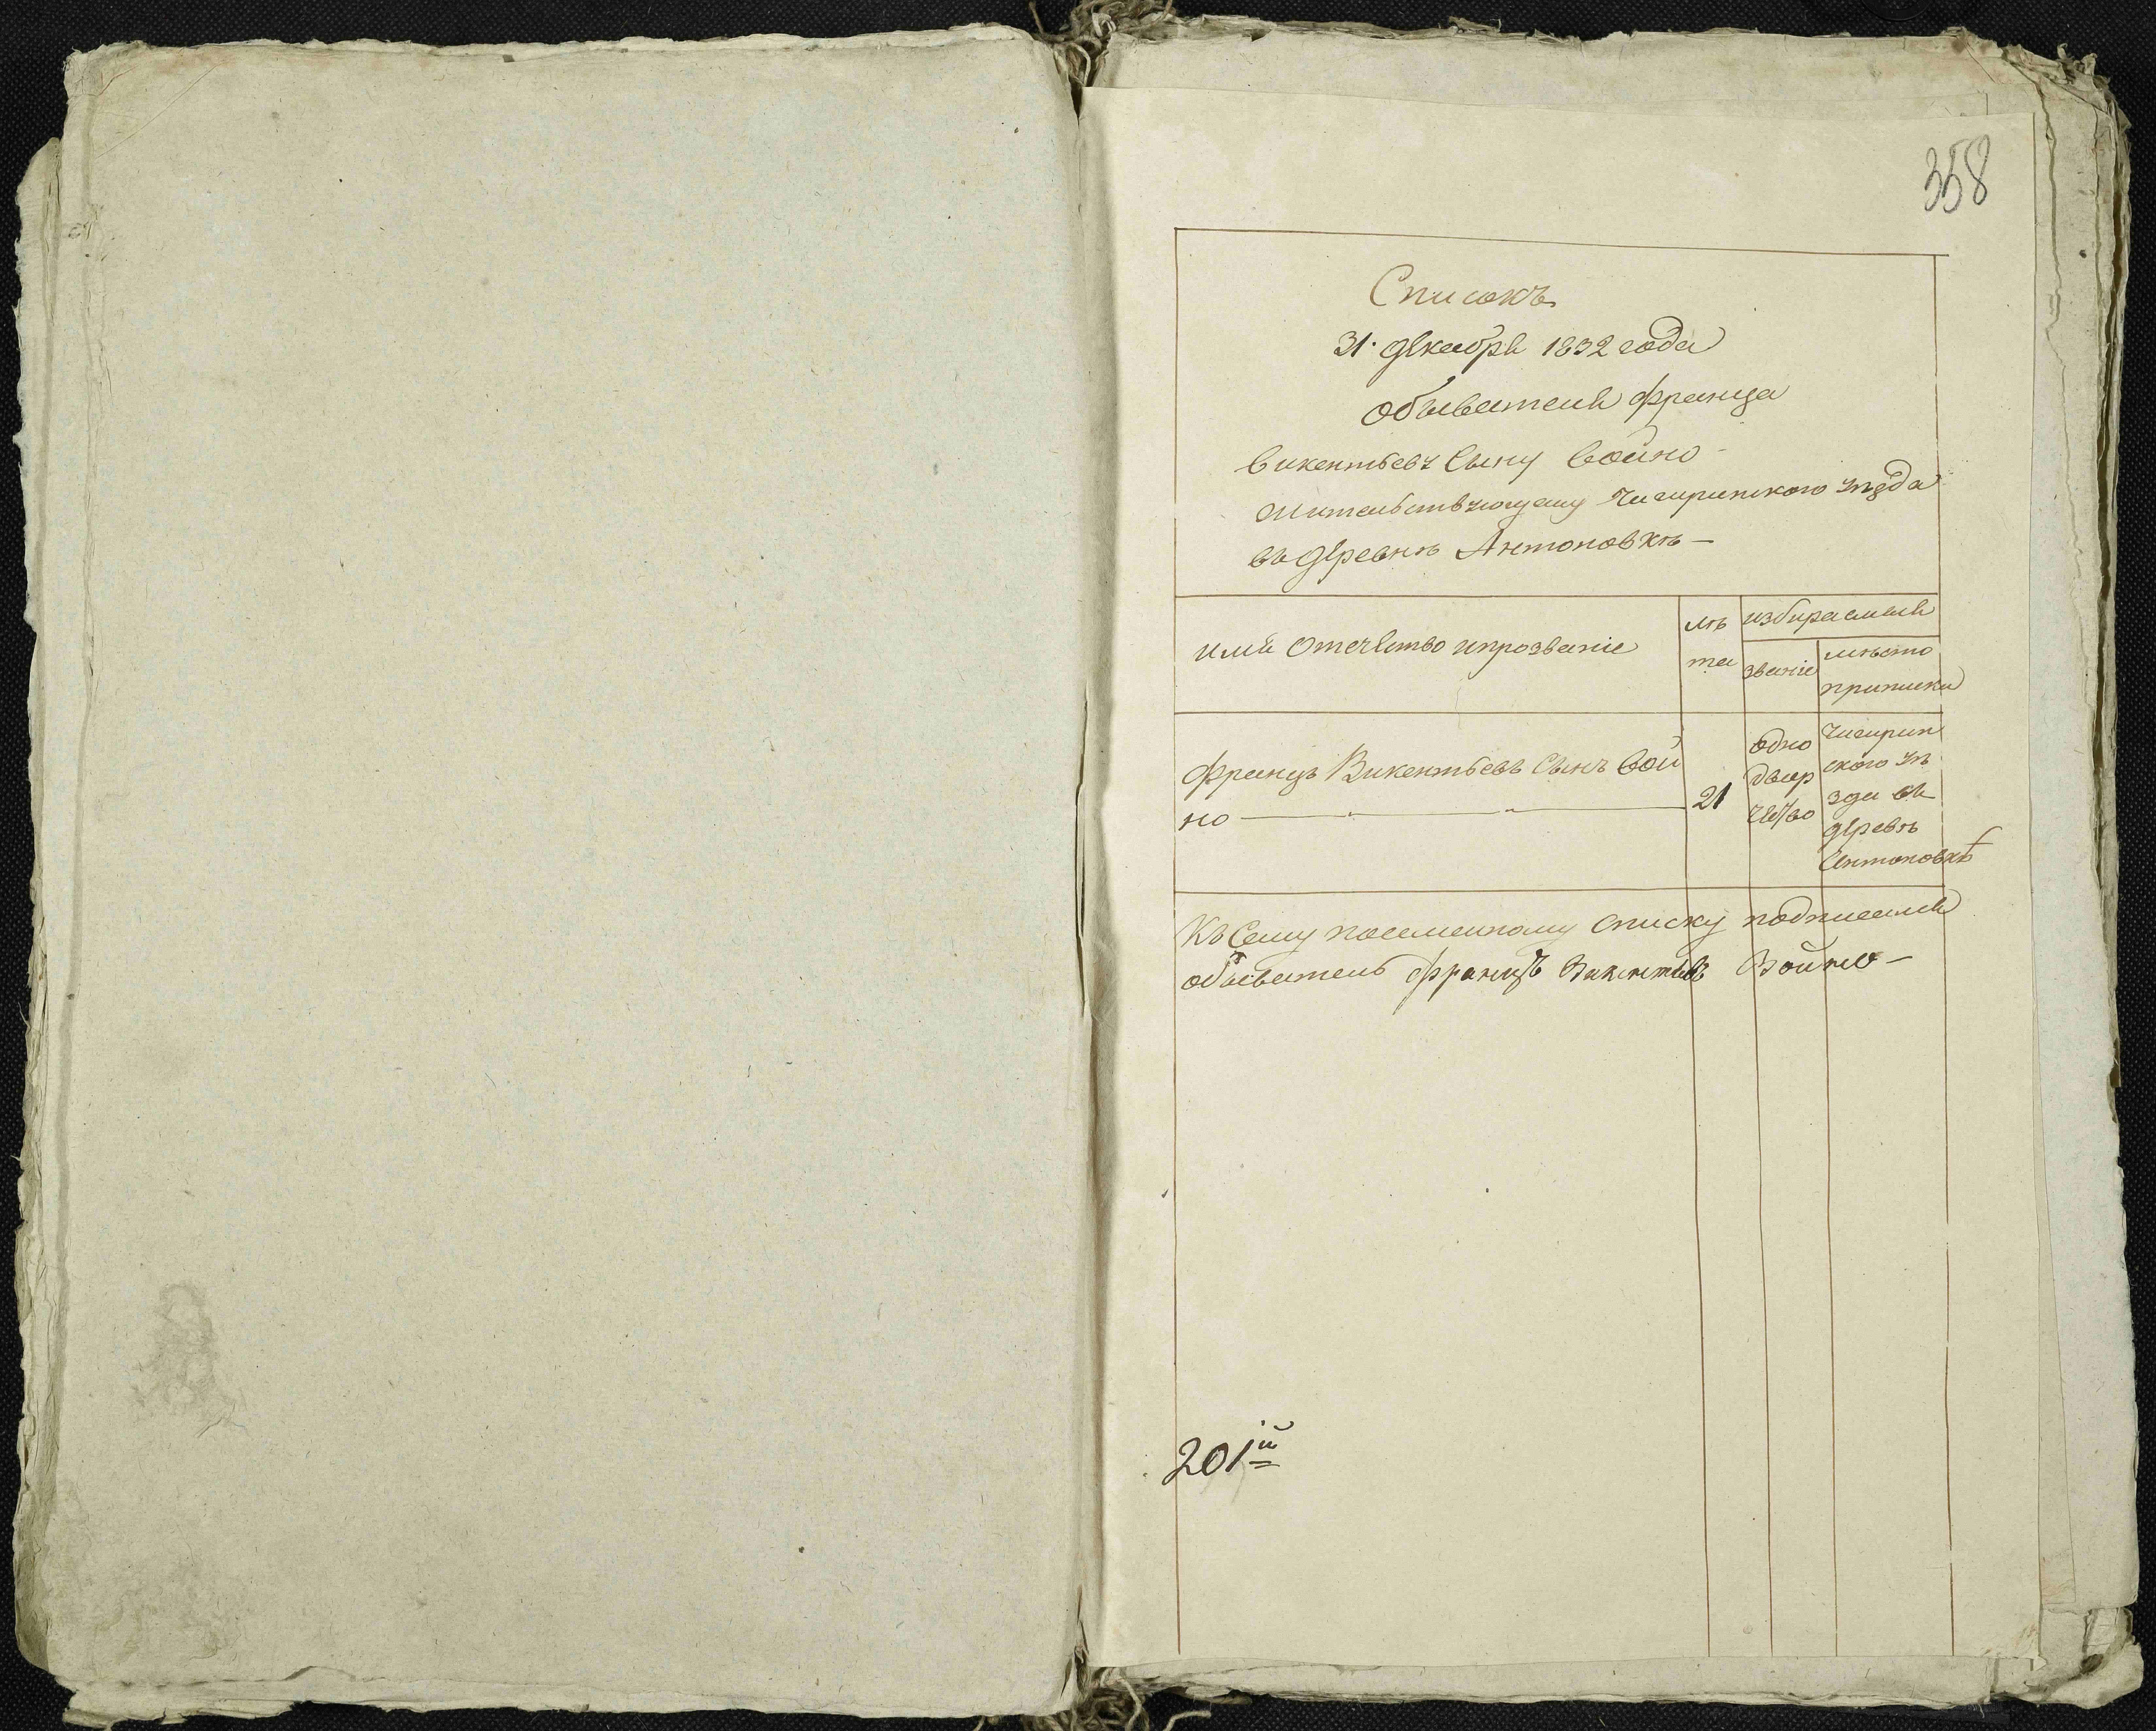 358
Списокъ
31. декабря 1832 года
обывателя Франца
Викентьевъ Сыну Войно -
жительствующему Чигиринского уезда
въ деревнѣ Антоновкѣ —
имя Отечество и прозваніе
лѣ
та
избираемыя
званіе
место
приписки
Францъ Викентьевъ Сынъ Вой
но
21
одно
двор
чество
Чигирин
ского уѣ
зда въ
деревнѣ
Антоновкѣ
Къ Сему посемейному списку подписался
обыватель Францъ Викентьевъ Войно —
201й